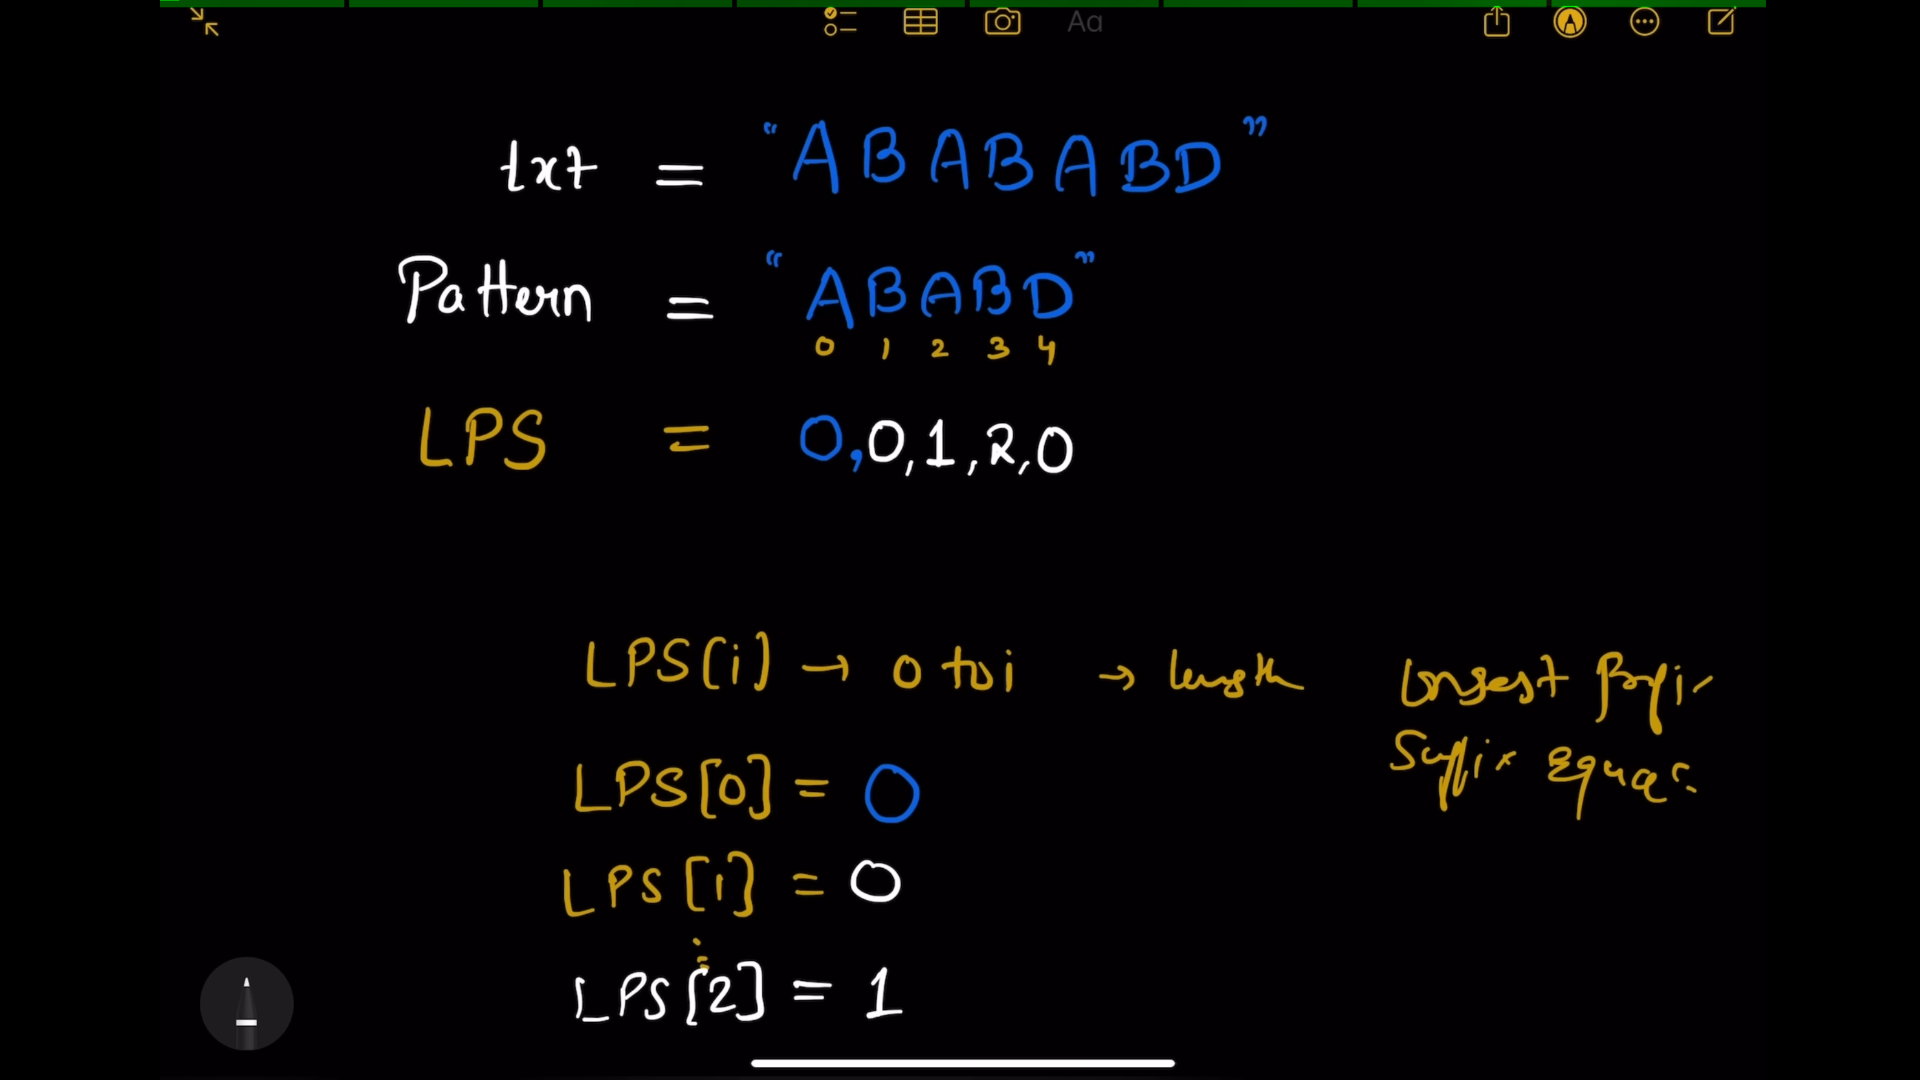 Aa
txt = "ABABABD"
Pattern = "ABABD"
0 1 2 3 4
LPS = 0,0,1,2,0
LPS[i] → 0 to i → length Longest Prefix
Suffix Equal
LPS[0] = 0
LPS[1] = 0
LPS[2] = 1